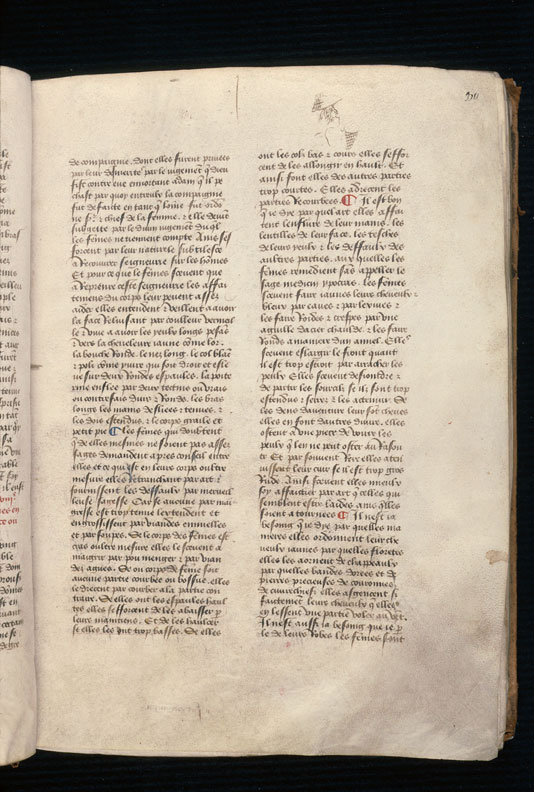 de compaignie. dont elles furent privees
par leur desverite par le iugement que dieu
fist contre eve enortant adam quil pe
chast par quoy entrerbla compaignie
fut defaite entant que lome fut
et chief de la femme. et elle devint
subgette par le divin iugement du quel
les femes ne tiennent compte Ains sef
forcent par leur naturele subtilesce
a Recouvrer seigneurie sur les homes
Et pour ce que les femes scevent que
a Reprenre ceste seigneurie les affai
temens du corps leur pevent asses
aider elles entendent et veillent a avoir
la face Reluisant par couleur vermeil
le et vive a avoir les yeulx longs
et vers la cheveleure iaune come lor.
la bouche Ronde. le nez long. le col blanc
et poli come yvire qui soit droit et esle
ve sur deux Rondes espaules. la poite
rine enflee par deux tetins ou vrais
ou contrefais durs et Ronds. les bras
longs les mains deliees et tenues. et
les dois estendus. et le corps graile et
petit pie ¶ les femes qui doubtent
que delles mesmes ne soient pas asses
sages demandent apres conseil entre
elles et ce qui est en leurs corps oultre
mesure elles Retranchent par art et
fournissent les deffaulx par merveil
leuse sagesse Car se aucune par mai
gresse est trop tenue len tendent et
engrossissent par viandes emmielees
et par soupes. Se le corps des femes est
gras oultre mesure elles le scevent a
maigrir par pou menger et par vian
des aigues. Se ou corps de feme soit
aucune partie courbe ou bossue. elles
la drecent par courber a la partie con
traire. Se elles ont les espaules haul
tes elles sefforcent de les abaissier par
leurs maintiens. Et de les haulcer
si elles les ont trop basses. Se elles
ont les cols bas et cours elles seffor
cent de les allongir en hault. Et
ainsi font elles des autres parties
trop courtes. Elles adrecent les
parties Recourbees ¶ Il est bon
que ie dye par quel art elles affai
tent lenfleure de leurs mains. les
lentilles de leur face. les tesches
de leurs yeulx et les deffaulx des
aultres parties. aux quelles les
femes remedient sans appeller le
sage medicin ypocras. les femes
scevent faire iaunes leurs cheveulx
bleux par eaues et par lexives et
les faire Roides et crespes par une
aguille dacier chaulde. et les faire
Ronds a maniere dun annel. Elles
scevent eslargir le front quant
il est trop estroit par arracher les
peulx Elles scevent desioindre et
de partir les sourcilz se ilz sont trop
estendus et serrez et les acremir. Se
les dens daventure leur sont cheues
elles en font dautres divire. elles
ostent a une piece de voirre les
peulx que len ne peut oster au Rasou
er Et par souvent Rere elles aten
uissent leur cuir se il est trop gros
Rude Ainsi scevent elles moult
soy affaitier par art que celles qui
sembloient estre laides ains elles
soient atournees ¶ Il nest ia
besoing que ie dye par quelles ma
nieres elles ordonnent leurs che
veulx iaunes par quelles florettes
elles les aornent de chappeaulx
par quelles bandes dorees et de
pierres precieuses de couronnes
de cuevrechiefz elles asgencent si
faitement leurs cheveulx quelles
en laissent une partie voler au vet.
Il nest aussi ia besoing que ie p
le de leurs Robes les femes sont